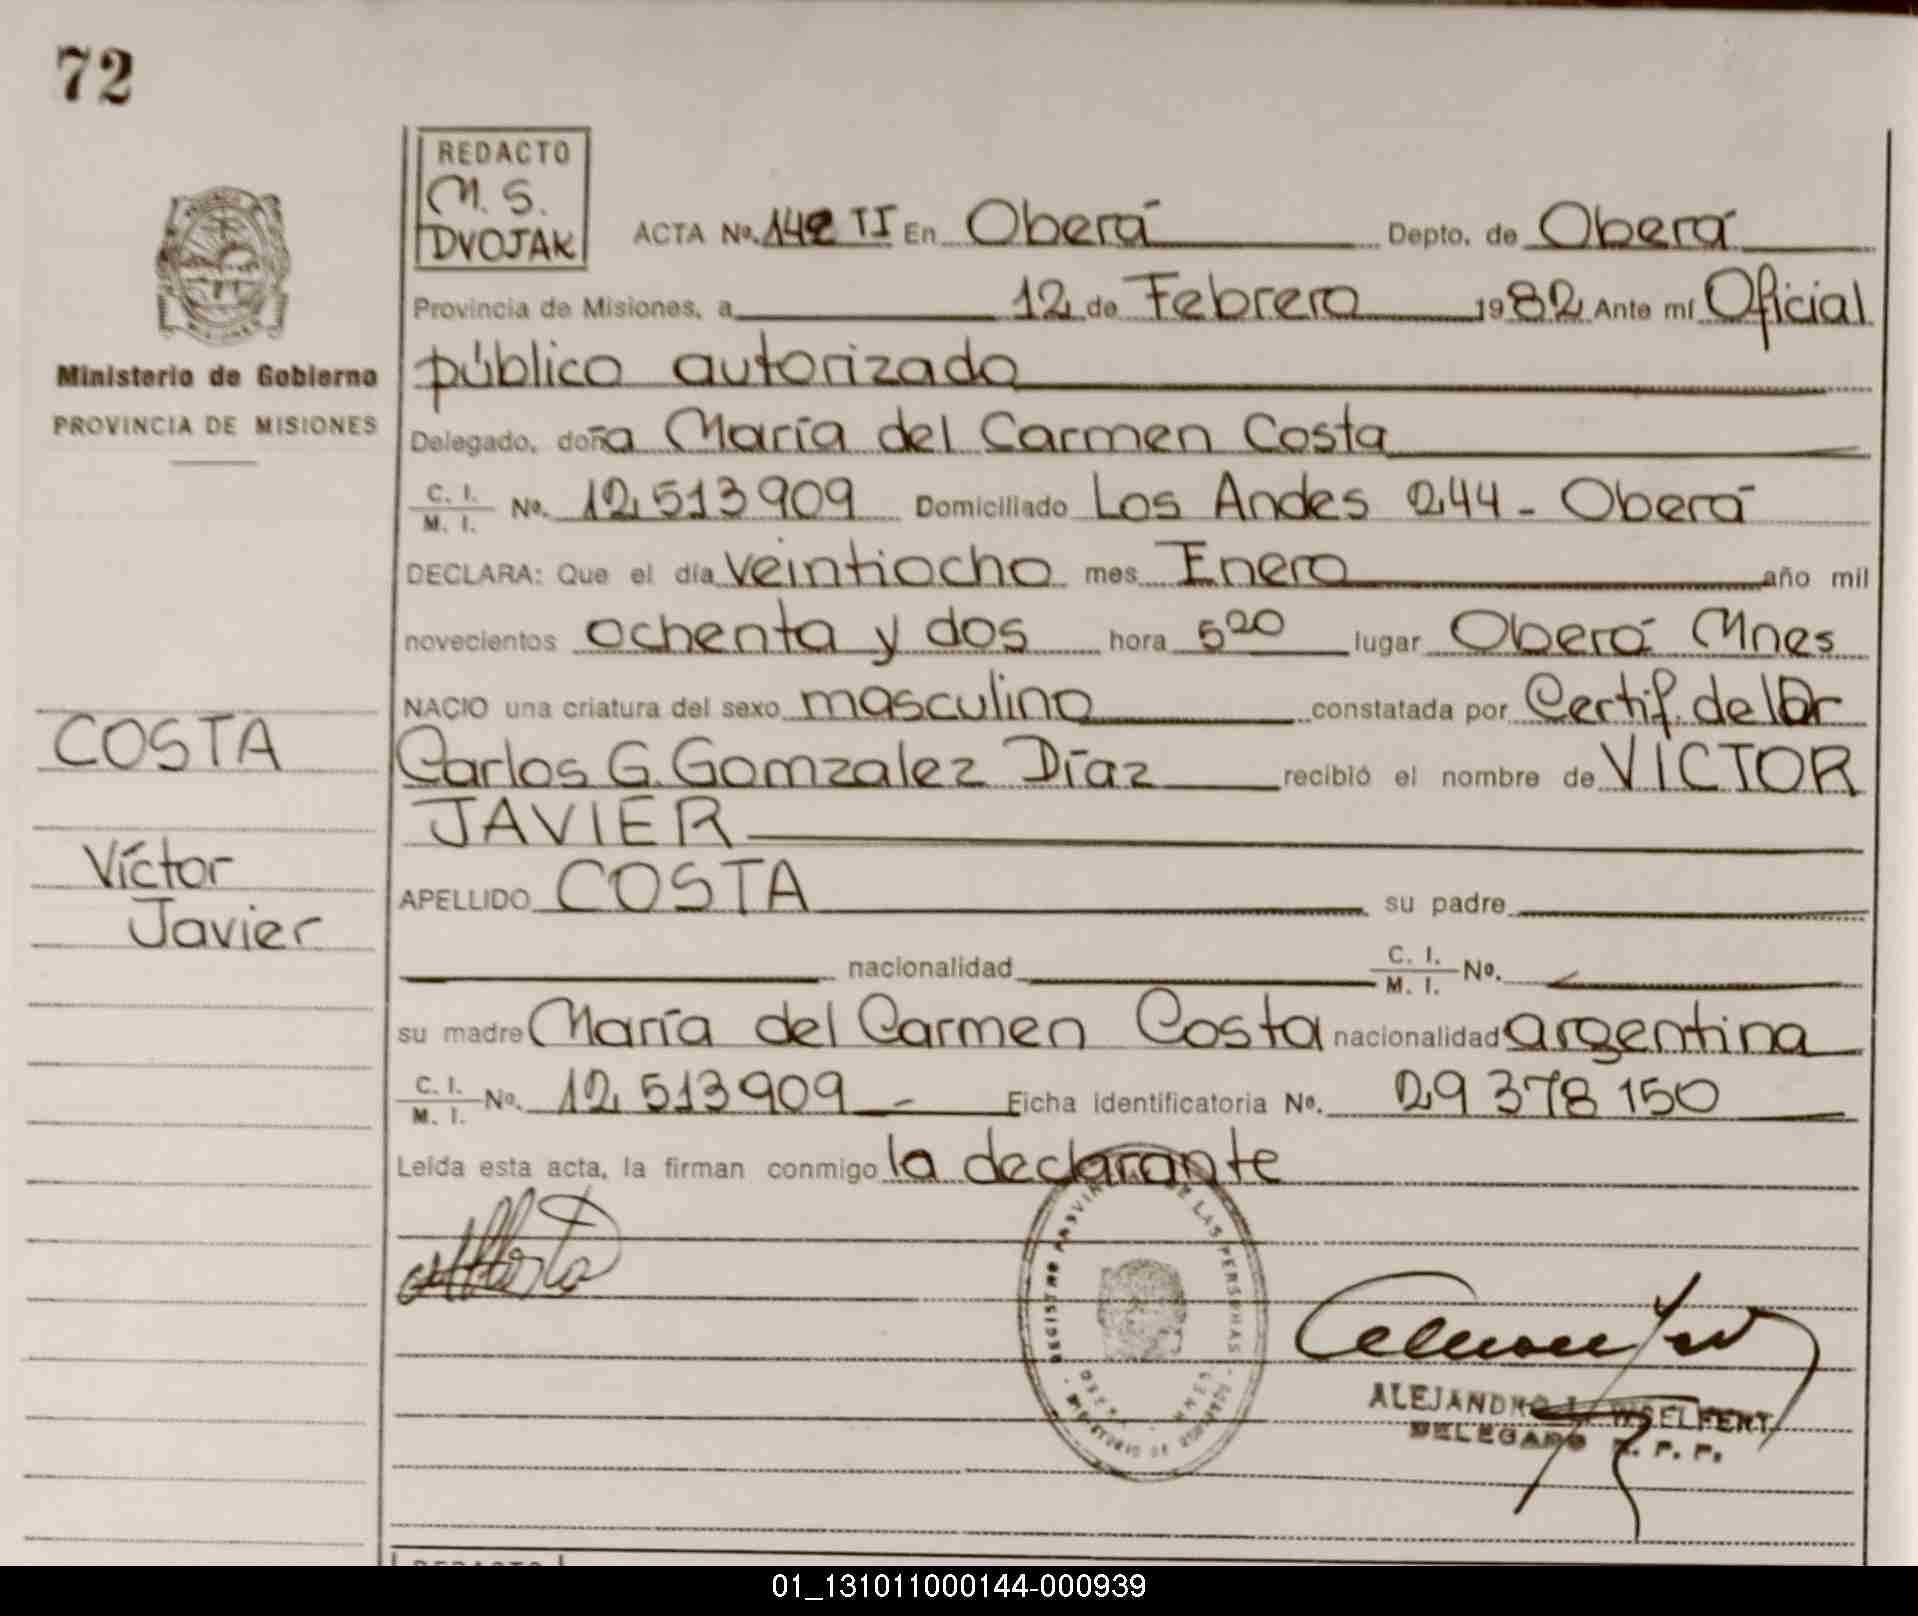 72
REDACTO
M. S.
DVOJAK
ACTA No. 142 II En Oberá Depto. de Oberá
Provincia de Misiones, a 12 de Febrero 1982 Ante mí Oficial
Ministerio de Gobierno
PROVINCIA DE MISIONES
público autorizado
Delegado, doña María del Carmen Costa
C. I.
M. I. No. 12.513909 Domiciliado Los Andes 244 - Oberá
DECLARA: Que el día veintiocho mes Enero año mil
novecientos ochenta y dos hora 5 20 lugar Oberá Mnes
NACIO una criatura del sexo masculino constatada por Certif. del Dr
COSTA
Carlos G. Gomzalez Díaz recibió el nombre de VICTOR
JAVIER
Víctor
Javier
APELLIDO COSTA su padre
nacionalidad C. I.
M. I. No.
su madre María del Carmen Costa nacionalidad argentina
C. I.
M. I. No. 12.513909 - Ficha identificatoria No. 29 378 150
Leída esta acta, la firman conmigo la declarante
REGISTRO PROVINCIAL DE LAS PERSONAS
ALEJANDRO
DELEGADO R. P. P.
REDACTO
01_131011000144-000939